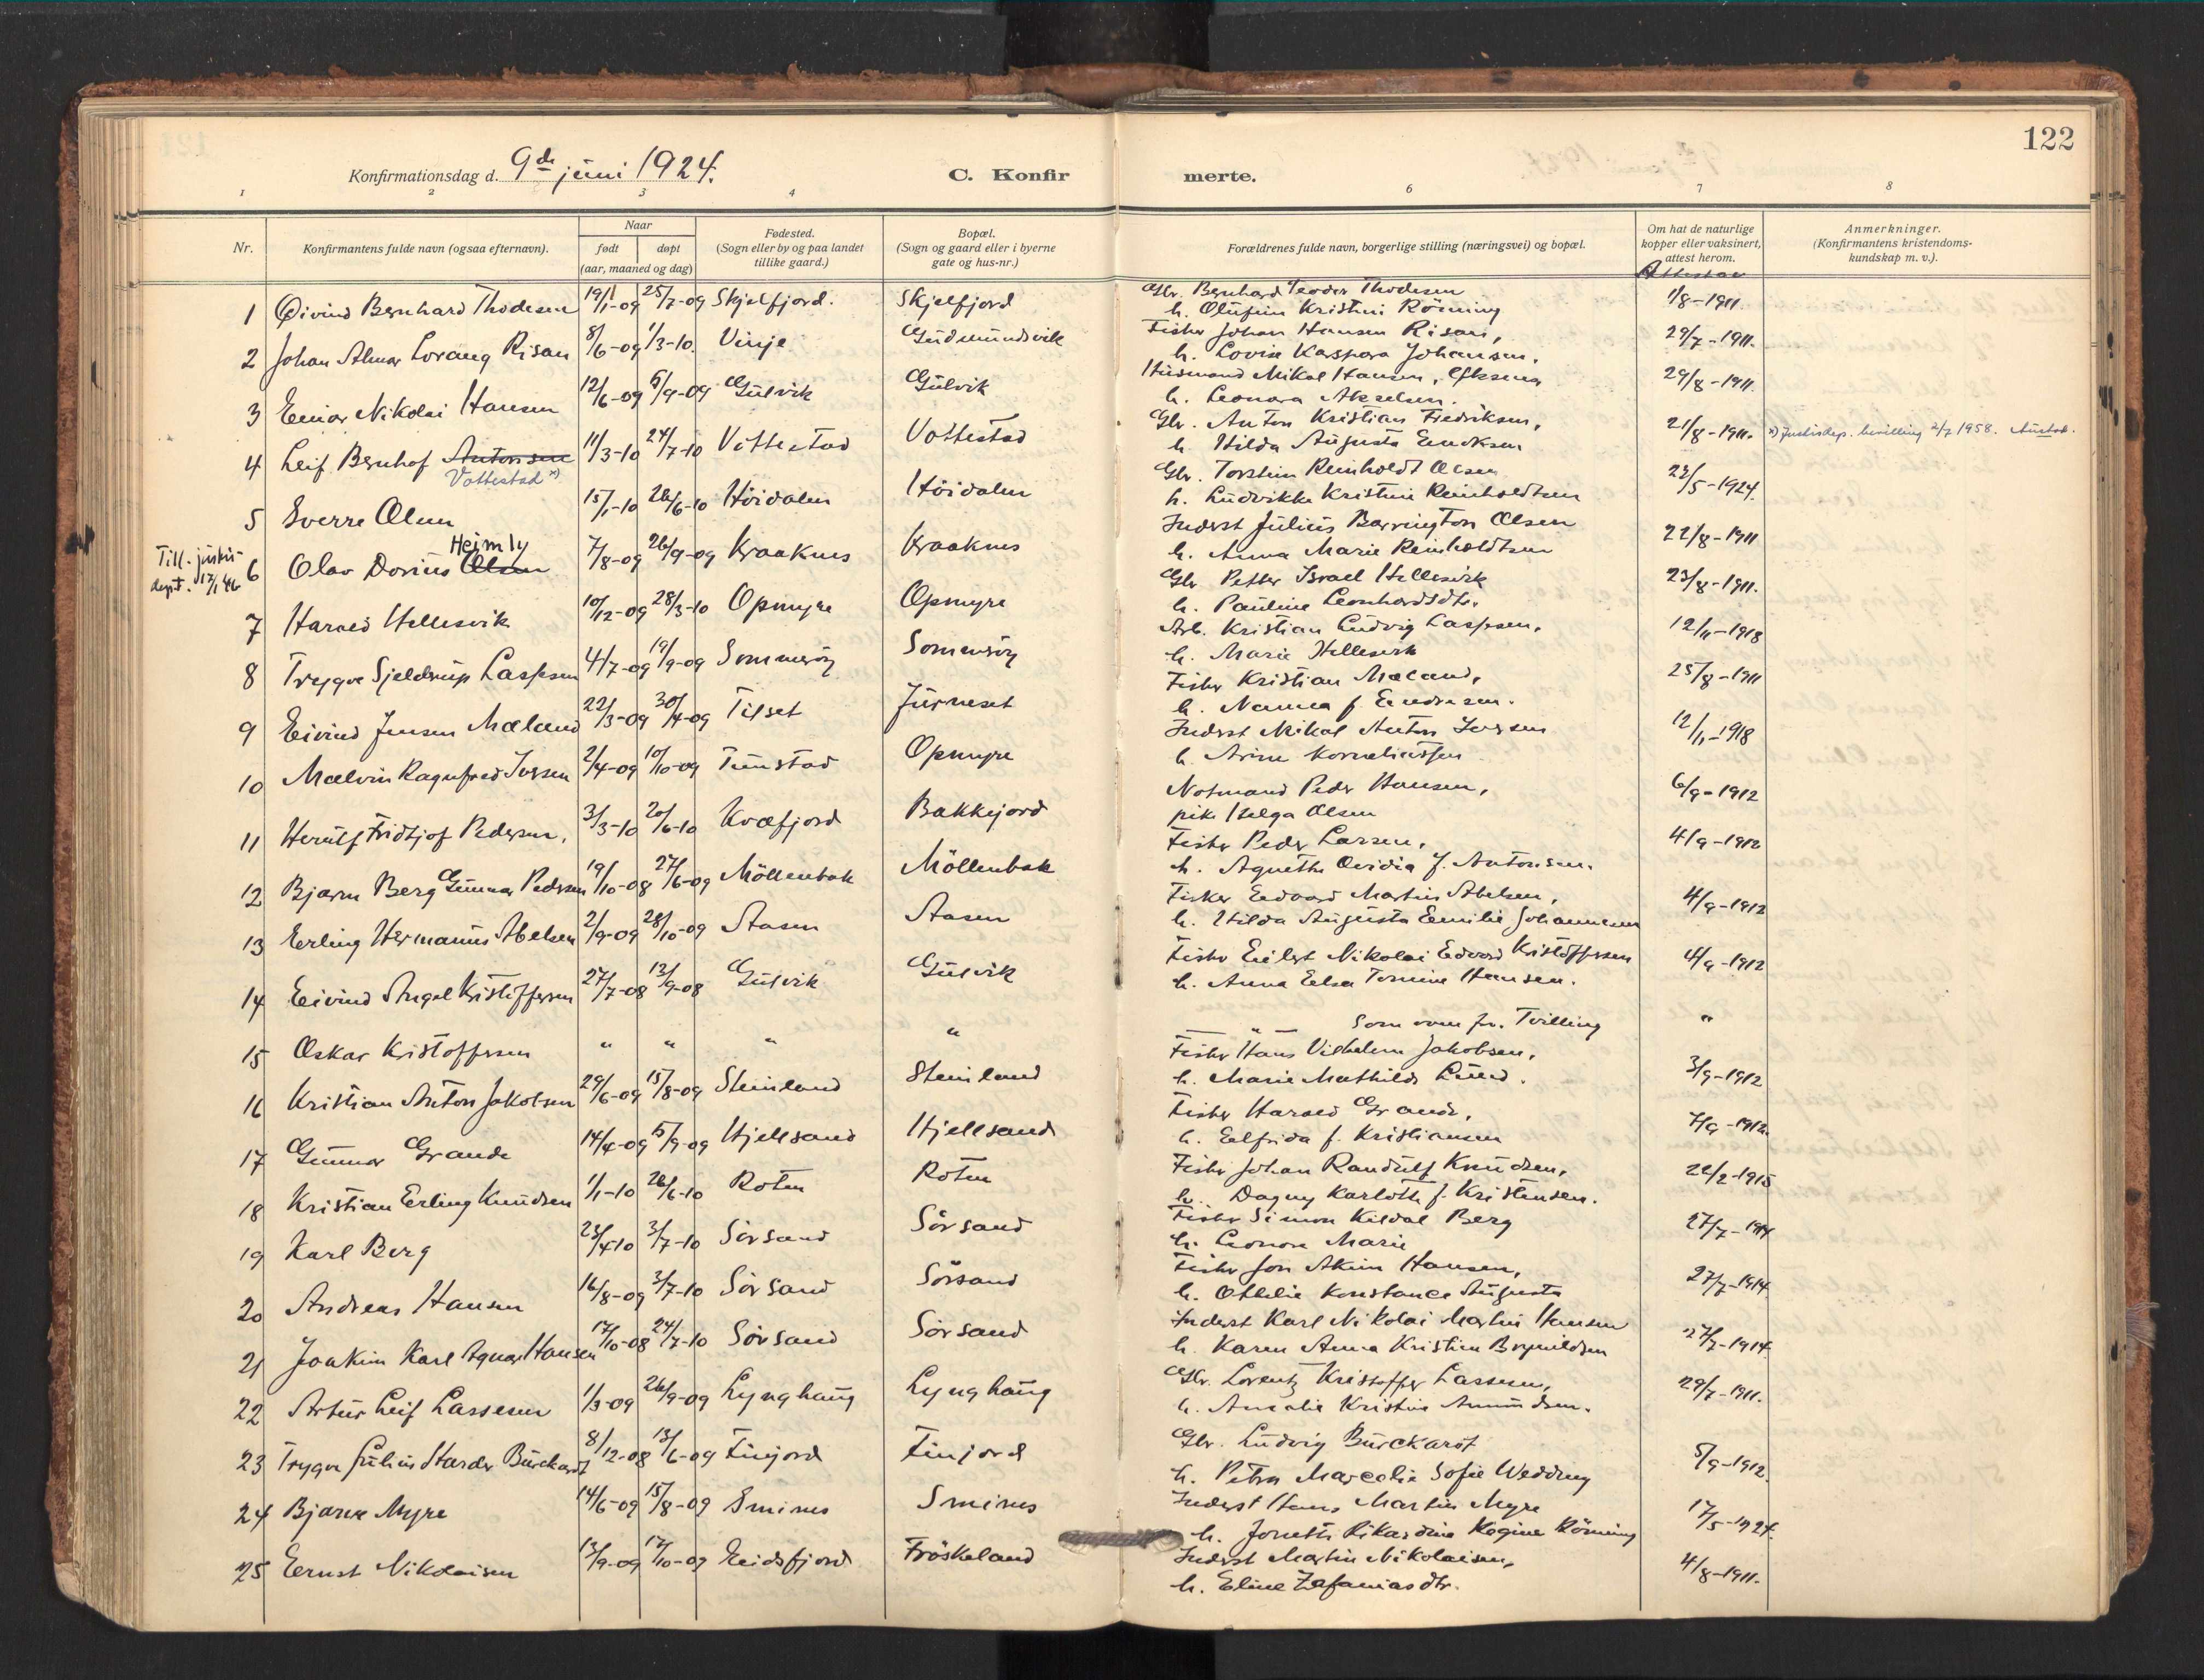 122
Konfirmationsdag d. 9de juni 1924.
C. Konfirmerte.
1 2 3 4 6 7 8
Nr.
Konfirmantens fulde navn (ogsaa efternavn).
Naar
født døpt
(aar, maaned og dag)
Fødested.
(Sogn eller by og paa landet
tillike gaard.)
Bopæl.
(Sogn og gaard eller i byerne
gate og hus-nr.)
Forældrenes fulde navn, borgerlige stilling (næringsvei) og bopæl.
Om hat de naturlige
kopper eller vaksinert,
attest herom.
Anmerkninger.
(Konfirmantens kristendoms-
kundskap m. v.).
1 Øivind Bernhard Thodesen 19/1-09 25/7-09 Skjelfjord. Skjelfjord Gbr. Bernhard Teodor Thodesen 1/8-1911.
h. Olufine Kristine Röning
2 Johan Almar Lorang Risan 8/6-09 1/3-10. Vinje Gudmundsvik Fisker Johan Hansen Risan, 29/7-1911.
h. Lovise Kaspara Johansen.
3 Einar Nikolai Hansen 12/6-09 5/9-09 Gulvik Gulvik Husmand Mikal Hansen, 29/8-1911
h. Leonora Akselsen.
4 Leif Bernhof Antonsen 11/3-10 24/7-10 Vottestad Vottestad Gbr. Anton Kristian Fredriksen, 21/8-1911. x) Justisdep. bevilling 2/7 1958.
Vottestad x)
h. Hilda Augusta Enoksen
5 Sverre Olsen 15/1-10 26/6-10 Höidalen Höidalen Gbr. Torstein Reinholdt Olsen 23/5-1924.
h. Ludvikke Kristine Reinholdtsen
Till. justis-
dept. 17/1 46
6 Olav Dorius Olsen Heimly 7/8-09 26/9-09 Kraaknes Kraaknes Inderst Julius Barrington Olsen 22/8-1911
h. Anna Marie Reinholdtsen
7 Harald Hellesvik 10/12-09 28/3-10 Opmyre Opmyre Gbr. Petter Israel Hellesvik 23/8-1911.
h. Pauline Leonhardsdtr.
8 Trygve Sjeldrup Caspersen 4/7-09 19/9-09 Sommeröy Sommeröy Arb. Kristian Ludvig Caspersen, 12/11-1918
h. Marie Hellesvik
9 Eivind Jensen Mæland 22/3-09 30/4-09 Tilset Jürneset Fisker Kristian Mæland, 25/8-1911
h. Nanna f. Endresen.
10 Mælvin Ragnfred Iversen 2/4-09 10/10-09 Tunstad Opmyre Inderst Mikal Anton Iversen 12/11-1918
h. Arine Korneliussen
11 Herulf Fridtjof Pedersen. 3/3-10 20/6-10 Kvæfjord Bakkejord Notmand Peder Hansen, 6/9-1912
pike Helga Olsen
12 Bjarne Berg Gunnar Pedersen 19/10-08 27/6-09 Möllenbak Möllenbak Fisker Peder Larsen, 4/9-1912
h. Agnethe Ovidia f. Antonsen.
13 Erling Hermanus Abelsen 2/9-09 28/10-09 Aasen Aasen Fisker Edvard Martin Abelsen, 4/9-1912
h. Hilda Augusta Emilie Johannesen
14 Eivind Angel Kristoffersen 27/7-08 13/9-08 Gulvik Gulvik Fisker Eilert Nikolai Edvard Kristoffersen 4/9-1912
h. Anna Elsa Tomine Hansen.
15 Oskar Kristoffersen " " " " — " — Som oven for. Tvilling "
16 Kristian Anton Jakobsen 29/6-09 15/8-09 Steinland Steinland Fisker Hans Vilhelm Jakobsen, 3/9-1912
h. Marie Mathilde Lund.
17 Gunnar Grande 14/4-09 5/9-09 Hjellsand Hjellsand Fisker Harald Grande, 7/9-1912.
h. Elfrida f. Kristiansen
18 Kristian Erling Knudsen 1/1-10 26/6-10 Roten Roten Fisker Johan Randulf Knudsen, 22/2-1915
h. Dagny Karlotte f. Kristensen.
19 Karl Berg 23/4-10 3/7-10 Sörsand Sörsand Fisker Simon Kildal Berg 27/7-1914
h. Leonore Marie
20 Andreas Hansen 16/8-09 3/7-10 Sörsand Sörsand Fisker Jon Akim Hansen, 27/7-1914.
h. Othelie Konstance Augusta
21 Joakim Karl Agnar Hansen 17/10-08 24/7-10 Sörsand Sörsand Inderst Karl Nikolai Martin Hansen 27/7-1914.
h. Karen Anna Kristine Brynildsen
22 Artur Leif Lassesen 1/3-09 26/9-09 Lynghaug Lynghaug Gbr. Lorentz Kristoffer Lassesen, 29/7-1911.
h. Amalie Kristine Amundsen.
23 Trygve Julius Harder Burckardt 8/12-08 13/6-09 Finjord Finjord Gbr. Ludvig Burckardt 5/9-1912.
h. Petra Marcelie Sofie Wedding
24 Bjarne Myre 14/6-09 15/8-09 Smines Smines Inderst Hans Martin Myre 17/5-1924.
h. Jonette Rikardine Regine Röning
25 Ernst Nikolaisen 13/9-09 17/10-09 Eidsfjord Fröskeland Inderst Martin Nikolaisen, 4/8-1911.
h. Eline Zefaniasdtr.